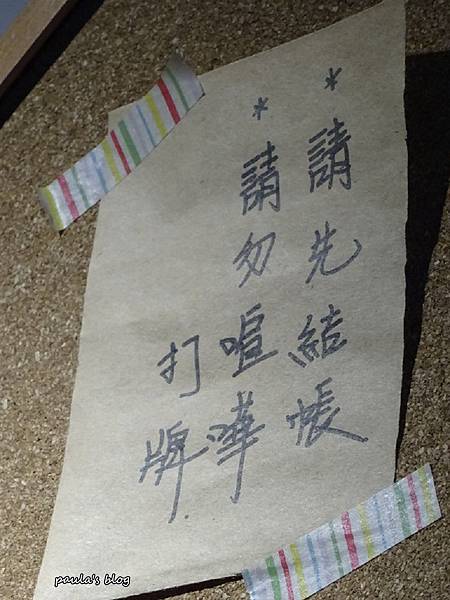 *請先結帳
*請勿喧嘩
打牌.
paula's blog